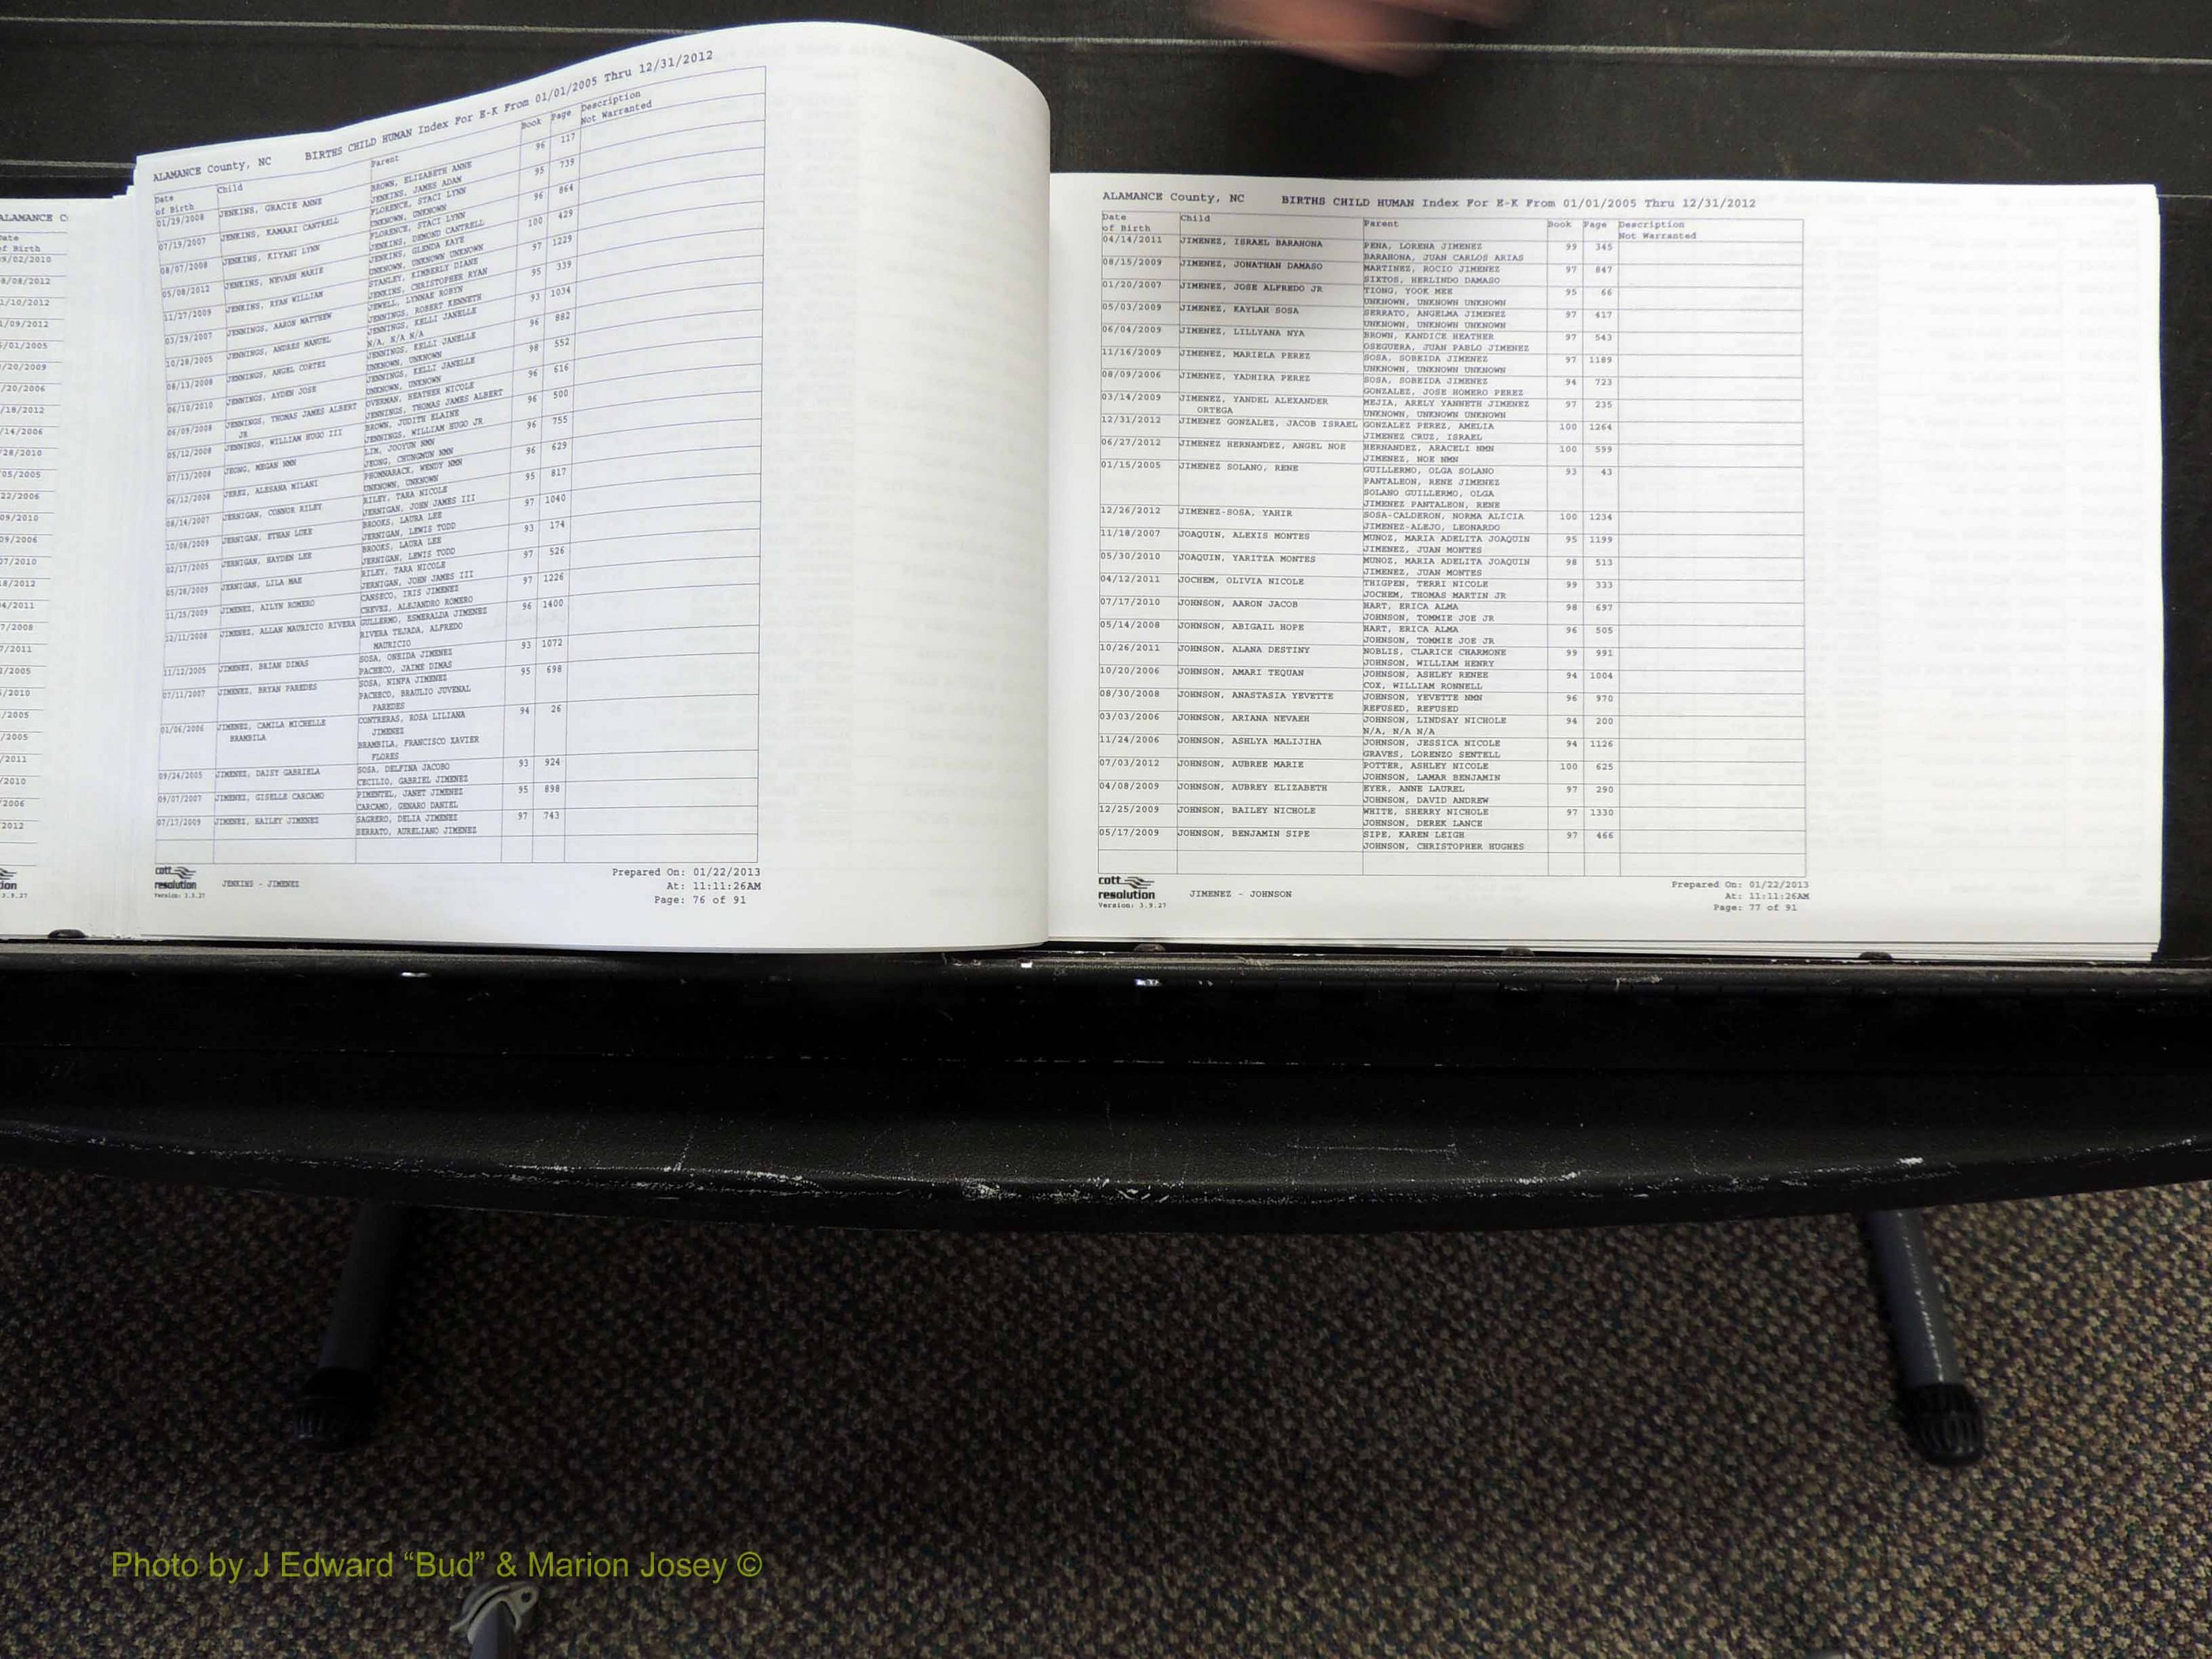 ALAMANCE C
Date
of Birth
ALAMANCE County, NC BIRTHS CHILD HUMAN Index For E-K From 01/01/2005 Thru 12/31/2012
Date of Birth Child Parent Book Page Description Not Warranted
01/29/2008 JENKINS, GRACIE ANNE BROWN, ELIZABETH ANNE 96 117
JENKINS, JAMES ADAM
07/19/2007 JENKINS, KAMARI CANTRELL FLORENCE, STACI LYNN 95 739
UNKNOWN, UNKNOWN
08/07/2008 JENKINS, KIYANI LYNN FLORENCE, STACI LYNN 96 864
JENKINS, DEMOND CANTRELL
05/08/2012 JENKINS, NEVAEH MARIE JENKINS, GLENDA KAYE 100 429
UNKNOWN, UNKNOWN UNKNOWN
11/27/2009 JENKINS, RYAN WILLIAM STANLEY, KIMBERLY DIANE 97 1229
JENKINS, CHRISTOPHER RYAN
03/29/2007 JENNINGS, AARON MATTHEW JEWELL, LYNNAE ROBYN 95 339
JENNINGS, ROBERT KENNETH
10/28/2005 JENNINGS, ANDRES MANUEL JENNINGS, KELLI JANELLE 93 1034
N/A, N/A N/A
08/13/2008 JENNINGS, ANGEL CORTEZ JENNINGS, KELLI JANELLE 96 882
UNKNOWN, UNKNOWN
06/10/2010 JENNINGS, AYDEN JOSE JENNINGS, KELLI JANELLE 98 552
UNKNOWN, UNKNOWN
06/09/2008 JENNINGS, THOMAS JAMES ALBERT OVERMAN, HEATHER NICOLE 96 616
JR JENNINGS, THOMAS JAMES ALBERT
05/12/2008 JENNINGS, WILLIAM HUGO III BROWN, JUDITH ELAINE 96 500
JENNINGS, WILLIAM HUGO JR
07/13/2008 JEONG, MEGAN NMN LIM, JOOYUN NMN 96 755
JEONG, CHUNGMUN NMN
06/12/2008 JEREZ, ALESANA MILANI PHOMNARACK, WENDY NMN 96 629
UNKNOWN, UNKNOWN
08/14/2007 JERNIGAN, CONNOR RILEY RILEY, TARA NICOLE 95 817
JERNIGAN, JOHN JAMES III
10/08/2009 JERNIGAN, ETHAN LUKE BROOKS, LAURA LEE 97 1040
JERNIGAN, LEWIS TODD
02/17/2005 JERNIGAN, HAYDEN LEE BROOKS, LAURA LEE 93 174
JERNIGAN, LEWIS TODD
05/28/2009 JERNIGAN, LILA MAE RILEY, TARA NICOLE 97 526
JERNIGAN, JOHN JAMES III
11/25/2009 JIMENEZ, AILYN ROMERO CANSECO, IRIS JIMENEZ 97 1226
CHEVEZ, ALEJANDRO ROMERO
12/11/2008 JIMENEZ, ALLAN MAURICIO RIVERA GULLERMO, ESMERALDA JIMENEZ 96 1400
RIVERA TEJADA, ALFREDO
MAURICIO
11/12/2005 JIMENEZ, BRIAN DIMAS SOSA, ONEIDA JIMENEZ 93 1072
PACHECO, JAIME DIMAS
07/11/2007 JIMENEZ, BRYAN PAREDES SOSA, NINFA JIMENEZ 95 698
PACHECO, BRAULIO JUVENAL
PAREDES
01/06/2006 JIMENEZ, CAMILA MICHELLE CONTRERAS, ROSA LILIANA 94 26
BRAMBILA JIMENEZ
BRAMBILA, FRANCISCO XAVIER
FLORES
09/24/2005 JIMENEZ, DAISY GABRIELA SOSA, DELFINA JACOBO 93 924
CECILIO, GABRIEL JIMENEZ
09/07/2007 JIMENEZ, GISELLE CARCAMO PIMENTEL, JANET JIMENEZ 95 898
CARCAMO, GENARO DANIEL
07/17/2009 JIMENEZ, HAILEY JIMENEZ SAGRERO, DELIA JIMENEZ 97 743
SERRATO, AURELIANO JIMENEZ
cott
resolution JENKINS - JIMENEZ
Version: 3.9.27
Prepared On: 01/22/2013
At: 11:11:26AM
Page: 76 of 91
ALAMANCE County, NC BIRTHS CHILD HUMAN Index For E-K From 01/01/2005 Thru 12/31/2012
Date of Birth Child Parent Book Page Description Not Warranted
04/14/2011 JIMENEZ, ISRAEL BARAHONA PENA, LORENA JIMENEZ 99 345
BARAHONA, JUAN CARLOS ARIAS
08/15/2009 JIMENEZ, JONATHAN DAMASO MARTINEZ, ROCIO JIMENEZ 97 847
SIXTOS, HERLINDO DAMASO
01/20/2007 JIMENEZ, JOSE ALFREDO JR TIONG, YOOK MEE 95 66
UNKNOWN, UNKNOWN UNKNOWN
05/03/2009 JIMENEZ, KAYLAH SOSA SERRATO, ANGELMA JIMENEZ 97 417
UNKNOWN, UNKNOWN UNKNOWN
06/04/2009 JIMENEZ, LILLYANA NYA BROWN, KANDICE HEATHER 97 543
OSEGUERA, JUAN PABLO JIMENEZ
11/16/2009 JIMENEZ, MARIELA PEREZ SOSA, SOBEIDA JIMENEZ 97 1189
UNKNOWN, UNKNOWN UNKNOWN
08/09/2006 JIMENEZ, YADHIRA PEREZ SOSA, SOBEIDA JIMENEZ 94 723
GONZALEZ, JOSE HOMERO PEREZ
03/14/2009 JIMENEZ, YANDEL ALEXANDER MEJIA, ARELY YANNETH JIMENEZ 97 235
ORTEGA UNKNOWN, UNKNOWN UNKNOWN
12/31/2012 JIMENEZ GONZALEZ, JACOB ISRAEL GONZALEZ PEREZ, AMELIA 100 1264
JIMENEZ CRUZ, ISRAEL
06/27/2012 JIMENEZ HERNANDEZ, ANGEL NOE HERNANDEZ, ARACELI NMN 100 599
JIMENEZ, NOE NMN
01/15/2005 JIMENEZ SOLANO, RENE GUILLERMO, OLGA SOLANO 93 43
PANTALEON, RENE JIMENEZ
SOLANO GUILLERMO, OLGA
JIMENEZ PANTALEON, RENE
12/26/2012 JIMENEZ-SOSA, YAHIR SOSA-CALDERON, NORMA ALICIA 100 1234
JIMENEZ-ALEJO, LEONARDO
11/18/2007 JOAQUIN, ALEXIS MONTES MUNOZ, MARIA ADELITA JOAQUIN 95 1199
JIMENEZ, JUAN MONTES
05/30/2010 JOAQUIN, YARITZA MONTES MUNOZ, MARIA ADELITA JOAQUIN 98 513
JIMENEZ, JUAN MONTES
04/12/2011 JOCHEM, OLIVIA NICOLE THIGPEN, TERRI NICOLE 99 333
JOCHEM, THOMAS MARTIN JR
07/17/2010 JOHNSON, AARON JACOB HART, ERICA ALMA 98 697
JOHNSON, TOMMIE JOE JR
05/14/2008 JOHNSON, ABIGAIL HOPE HART, ERICA ALMA 96 505
JOHNSON, TOMMIE JOE JR
10/26/2011 JOHNSON, ALANA DESTINY NOBLIS, CLARICE CHARMONE 99 991
JOHNSON, WILLIAM HENRY
10/20/2006 JOHNSON, AMARI TEQUAN JOHNSON, ASHLEY RENEE 94 1004
COX, WILLIAM RONNELL
08/30/2008 JOHNSON, ANASTASIA YEVETTE JOHNSON, YEVETTE NMN 96 970
REFUSED, REFUSED
03/03/2006 JOHNSON, ARIANA NEVAEH JOHNSON, LINDSAY NICHOLE 94 200
N/A, N/A N/A
11/24/2006 JOHNSON, ASHLYA MALIJIHA JOHNSON, JESSICA NICOLE 94 1126
GRAVES, LORENZO SENTELL
07/03/2012 JOHNSON, AUBREE MARIE POTTER, ASHLEY NICOLE 100 625
JOHNSON, LAMAR BENJAMIN
04/08/2009 JOHNSON, AUBREY ELIZABETH EYER, ANNE LAUREL 97 290
JOHNSON, DAVID ANDREW
12/25/2009 JOHNSON, BAILEY NICHOLE WHITE, SHERRY NICHOLE 97 1330
JOHNSON, DEREK LANCE
05/17/2009 JOHNSON, BENJAMIN SIPE SIPE, KAREN LEIGH 97 466
JOHNSON, CHRISTOPHER HUGHES
cott
resolution JIMENEZ - JOHNSON
Version: 3.9.27
Prepared On: 01/22/2013
At: 11:11:26AM
Page: 77 of 91
Photo by J Edward “Bud” & Marion Josey ©